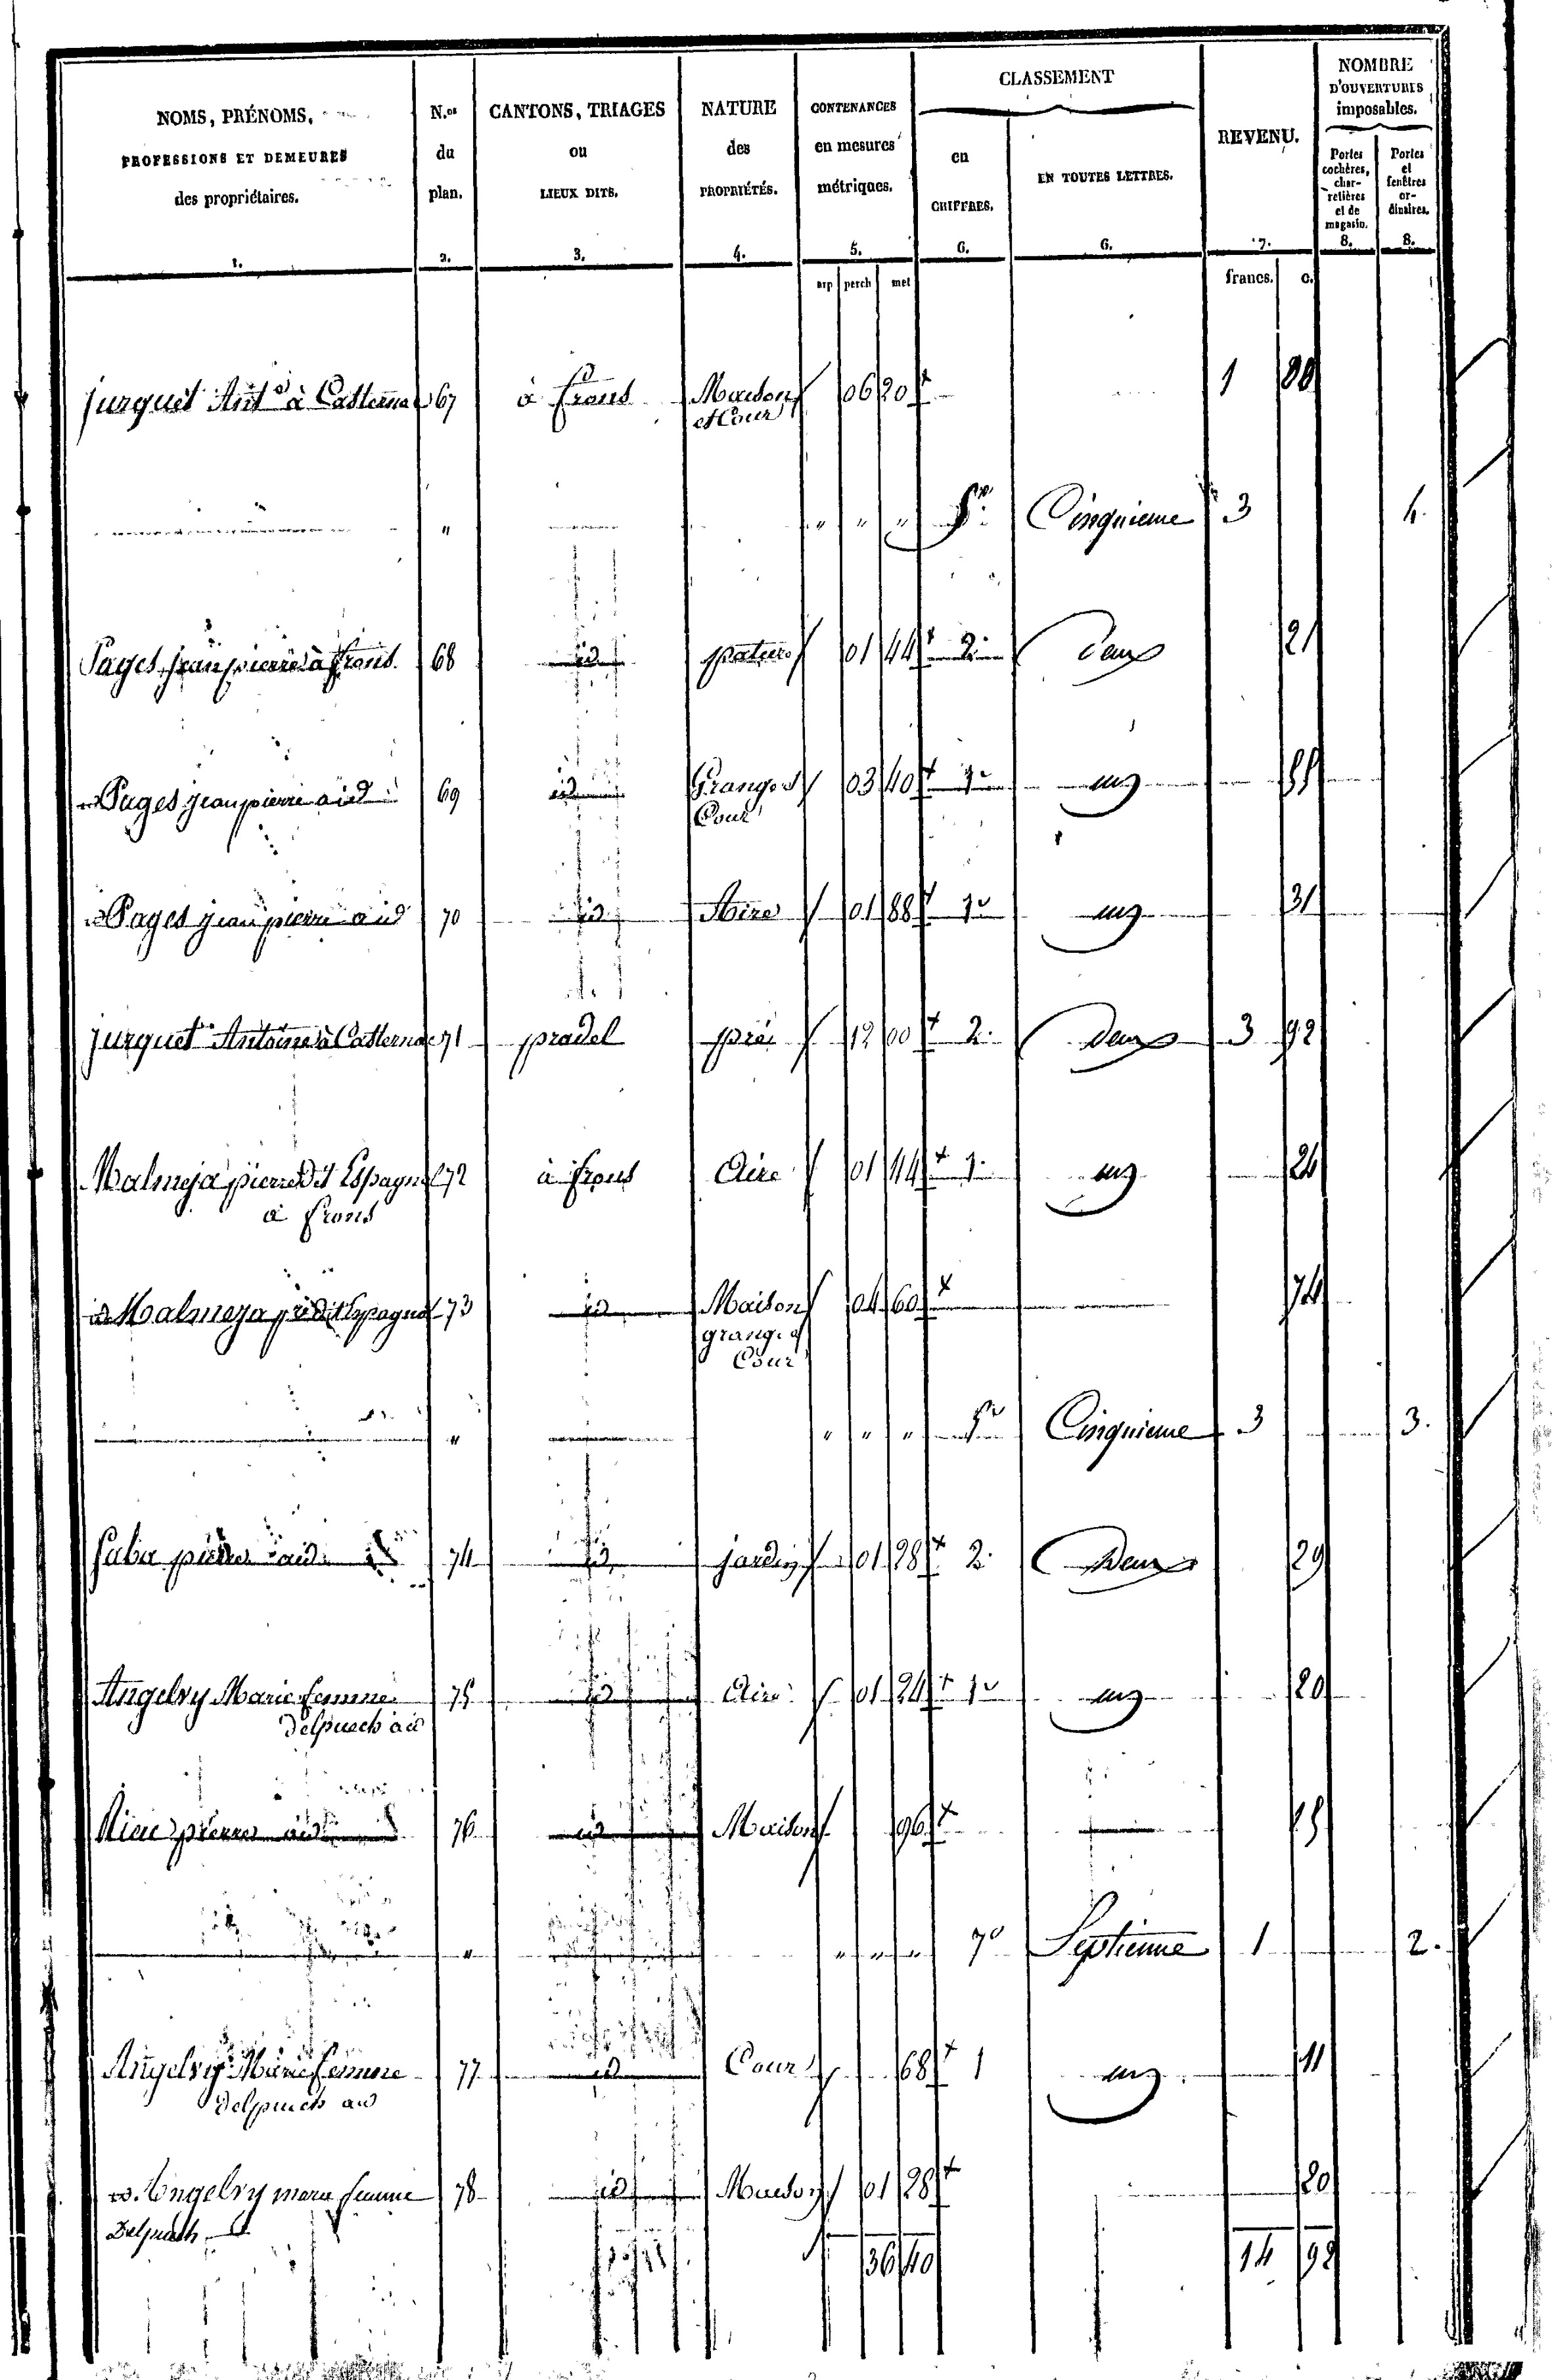 NOMS, PRÉNOMS, PROFESSIONS ET DEMEURES des propriétaires. 1.
N.os du plan. 2.
CANTONS, TRIAGES ou LIEUX DITS. 3.
NATURE des PROPRIÉTÉS. 4.
CONTENANCES en mesures métriques. 5.
CLASSEMENT
en CHIFFRES. 6.
EN TOUTES LETTRES. 6.
REVENU. 7.
NOMBRE D'OUVERTURES imposables.
Portes cochères, charretières et de magasin. 8.
Portes et fenêtres ordinaires. 8.
arp perch met francs. c.
jurquet Ant.e à Casterna 67 à frons Maison et Cour 06 20 1 80
" " " " 5e Cinquieme 3 4.
Pages jean pierre à frons. 68 id pature 01 44 2. deux 21
id Pages jean pierre a id 69 id Grange et Cour 03 40 1e un 55
id Pages jean pierre a id 70 id Aire 01 88 1e un 31
jurquet Antoine à Casterna 71 pradel pré 12 00 2. deux 3 92
Malmeja pierre dit Espagnol 72 à frons Aire 01 44 1. un 24
à frons
id Malmeja pre dit Espagnol 73 id Maison grange et Cour 04 60 74
" " " " 5e Cinquieme 3 3.
pierre a id 74 id jardin 01 28 2. Deux 29
Angelvy Marie femme 75 id Aire 01 24 1e un 20
delpuech a id
pierre a id 76 id Maison 96 15
" " " " 7e Septieme 1 2.
Angelvy Marie femme 77 id Cour 68 1 un 11
delpuech a id
id. Angelvy marie femme 78 id Maison 01 28 20
Delpuech
36 40 14 92